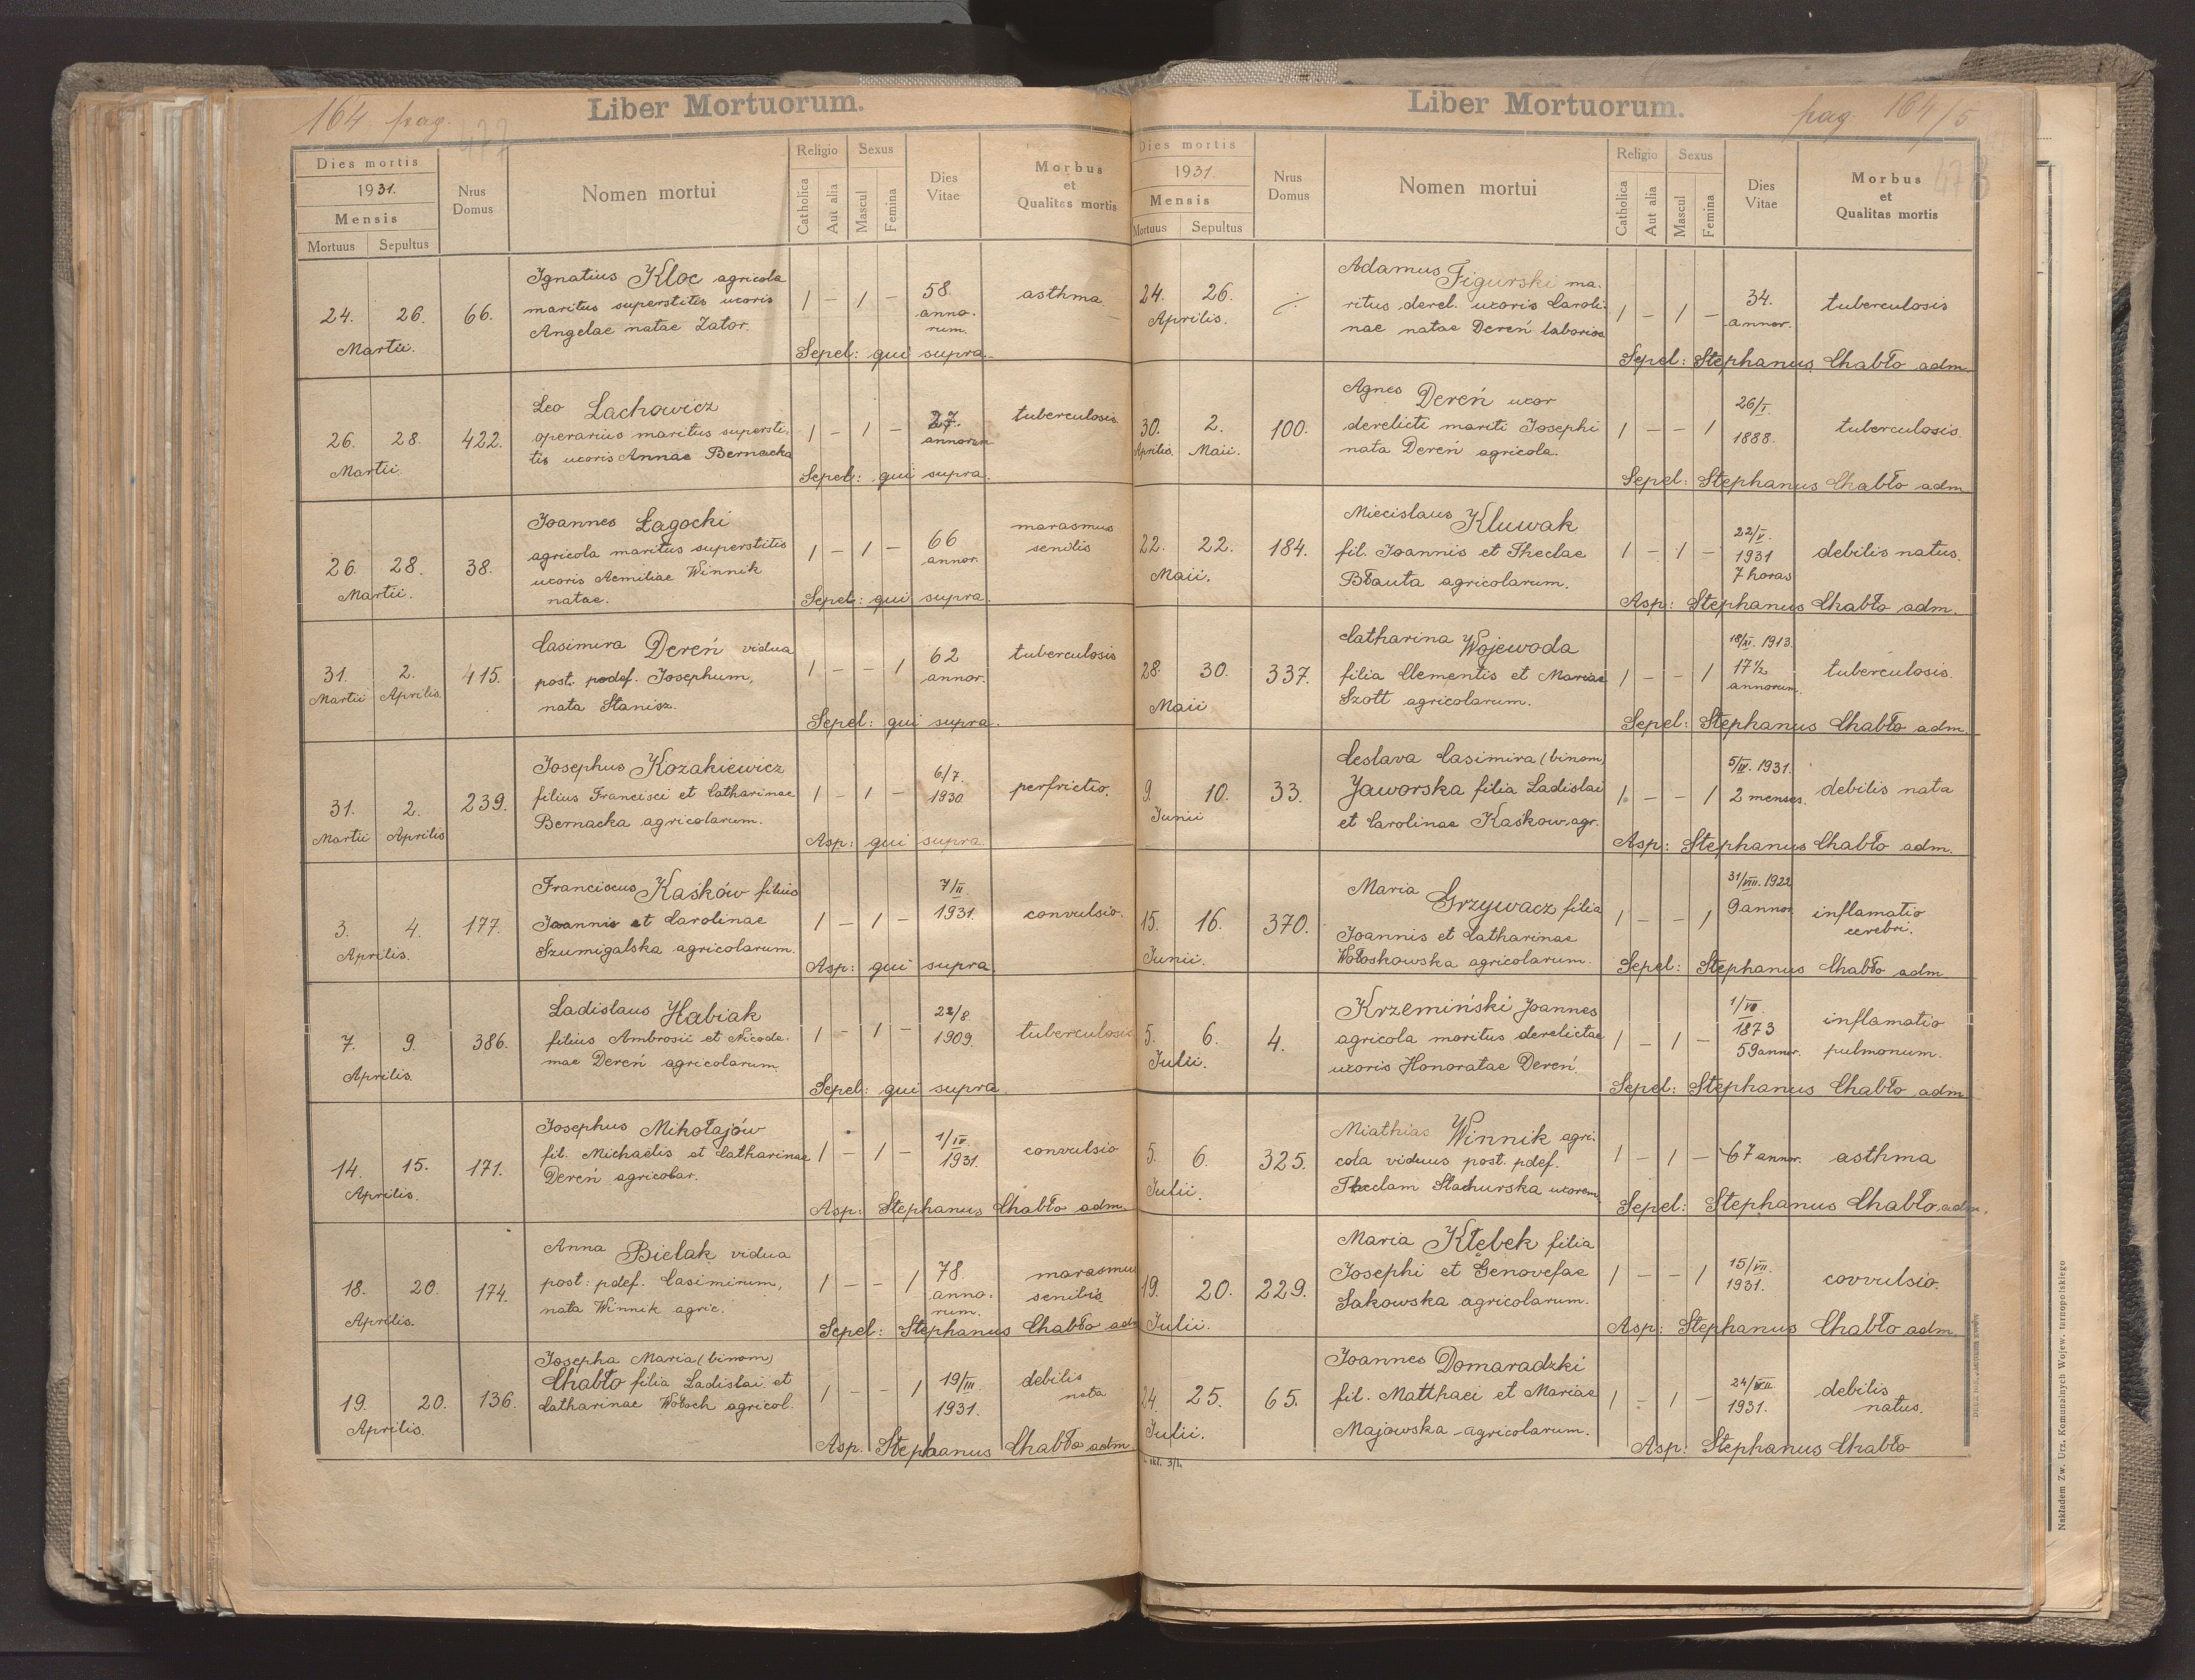 164 pag.
477
Liber Mortuorum.
Dies mortis
1931.
Mensis
Mortuus Sepultus
Nrus Domus
Nomen mortui
Religio
Catholica
Aut alia
Sexus
Mascul
Femina
Dies Vitae
Morbus et Qualitas mortis
24. 26. Martii.
66.
Ignatius Kloc agricola
maritus superstitis uxoris
Angelae natae Zator.
1 – 1 –
58.
anno-
rum.
asthma
Sepel: gui supra.
26. 28. Martii.
422.
Leo Lachowicz
operarius maritus supersti-
tis uxoris Annae Bernacka
1 – 1 –
27.
annorum
tuberculosis
Sepel: gui supra.
26. 28. Martii.
38.
Joannes Łagocki
agricola maritus superstitis
uxoris Aemiliae Winnik
natae.
1 – 1 –
66
annor.
marasmus
senilis
Sepel: gui supra.
31. Martii 2. Aprilis.
415.
Casimira Dereń vidua
post. pdef. Josephum,
nata Stanisz.
1 – – 1
62
annor.
tuberculosis
Sepel: gui supra.
31. Martii 2. Aprilis
239.
Josephus Kozakiewicz
filius Francisci et Catharinae
Bernacka agricolarum.
1 – 1 –
6/7.
1930.
perfrictio.
Asp: gui supra.
3. 4. Aprilis.
177.
Franciscus Kaśków filius
Joannis et Carolinae
Szumigalska agricolarum.
1 – 1 –
7/II.
1931.
convulsio.
Asp: gui supra.
7. 9. Aprilis.
386.
Ladislaus Habiak
filius Ambrosii et Nicode-
mae Dereń agricolarum.
1 – 1 –
22/8.
1909.
tuberculosis
Sepel: gui supra.
14. 15. Aprilis.
171.
Josephus Mikołajów
fil. Michaelis et Catharinae
Dereń agricolar.
1 – 1 –
1/IV.
1931.
convulsio
Asp: Stephanus Chabło adm.
18. 20. Aprilis.
174.
Anna Bielak vidua
post: pdef. Casimirum,
nata Winnik agric.
1 – – 1
78.
anno-
rum.
marasmus
senilis
Sepel: Stephanus Chabło adm
19. 20. Aprilis.
136.
Josepha Maria (binom)
Chabło filia Ladislai et
Catharinae Wołoch agricol.
1 – – 1
19/III.
1931.
debilis
nata
Asp. Stephanus Chabło adm.
Liber Mortuorum.
pag. 164/5
478
Dies mortis
1931.
Mensis
Mortuus Sepultus
Nrus Domus
Nomen mortui
Religio
Catholica
Aut alia
Sexus
Mascul
Femina
Dies Vitae
Morbus et Qualitas mortis
24. 26. Aprilis.
Adamus Figurski ma-
ritus derel. uxoris Caroli-
nae natae Dereń laborios
1 – 1 –
34.
annor.
tuberculosis
Sepel: Stephanus Chabło adm.
30. Aprilis. 2. Maii.
100.
Agnes Dereń uxor
derelicti mariti Josephi
nata Dereń agricola.
1 – – 1
26/I.
1888.
tuberculosis.
Sepel: Stephanus Chabło adm
22. 22. Maii.
184.
Miecislaus Kluwak
fil. Joannis et Theclae
Błauta agricolarum.
1 – 1 –
22/V.
1931
7 horas
debilis natus.
Asp: Stephanus Chabło adm.
28. 30. Maii
337.
Catharina Wojewoda
filia Clementis et Mariae
Szott agricolarum.
1 – – 1
18/XI. 1913.
17½
annorum.
tuberculosis.
Sepel: Stephanus Chabło adm.
9. 10. Junii
33.
Ceslava Casimira (binom)
Jaworska filia Ladislai
et Carolinae Kaśkow. agr.
1 – – 1
5/IV. 1931.
2 menses.
debilis nata
Asp: Stephanus Chabło adm.
15. 16. Junii.
370.
Maria Grzywacz filia
Joannis et Catharinae
Wołoskowska agricolarum.
1 – – 1
31/VIII. 1922
9 annor.
inflamatio
cerebri.
Sepel: Stephanus Chabło adm.
5. 6. Julii.
4.
Krzemiński Joannes
agricola moritus derelictae
uxoris Honoratae Dereń.
1 – 1 –
1/VII
1873
59 annor.
inflamatio
pulmonum.
Sepel: Stephanus Chabło adm
5. 6. Julii.
325.
Miathias Winnik agri-
cola viduus post. pdef.
Theclam Stachurska uxorem
1 – 1 –
67 annor.
asthma
Sepel: Stephanus Chabło adm.
19. 20. Julii.
229.
Maria Kłębek filia
Josephi et Genovefae
Sakowska agricolarum.
1 – – 1
15/VII.
1931.
covvulsio.
Asp: Stephanus Chabło adm.
24. 25. Julii.
65.
Joannes Domaradzki
fil. Matthaei et Mariae
Majowska agricolarum.
1 – 1 –
24/VII
1931.
debilis
natus.
Asp: Stephanus Chabło
Nakładem Zw. Urz. Komunalnych Wojew. tarnopolskiego